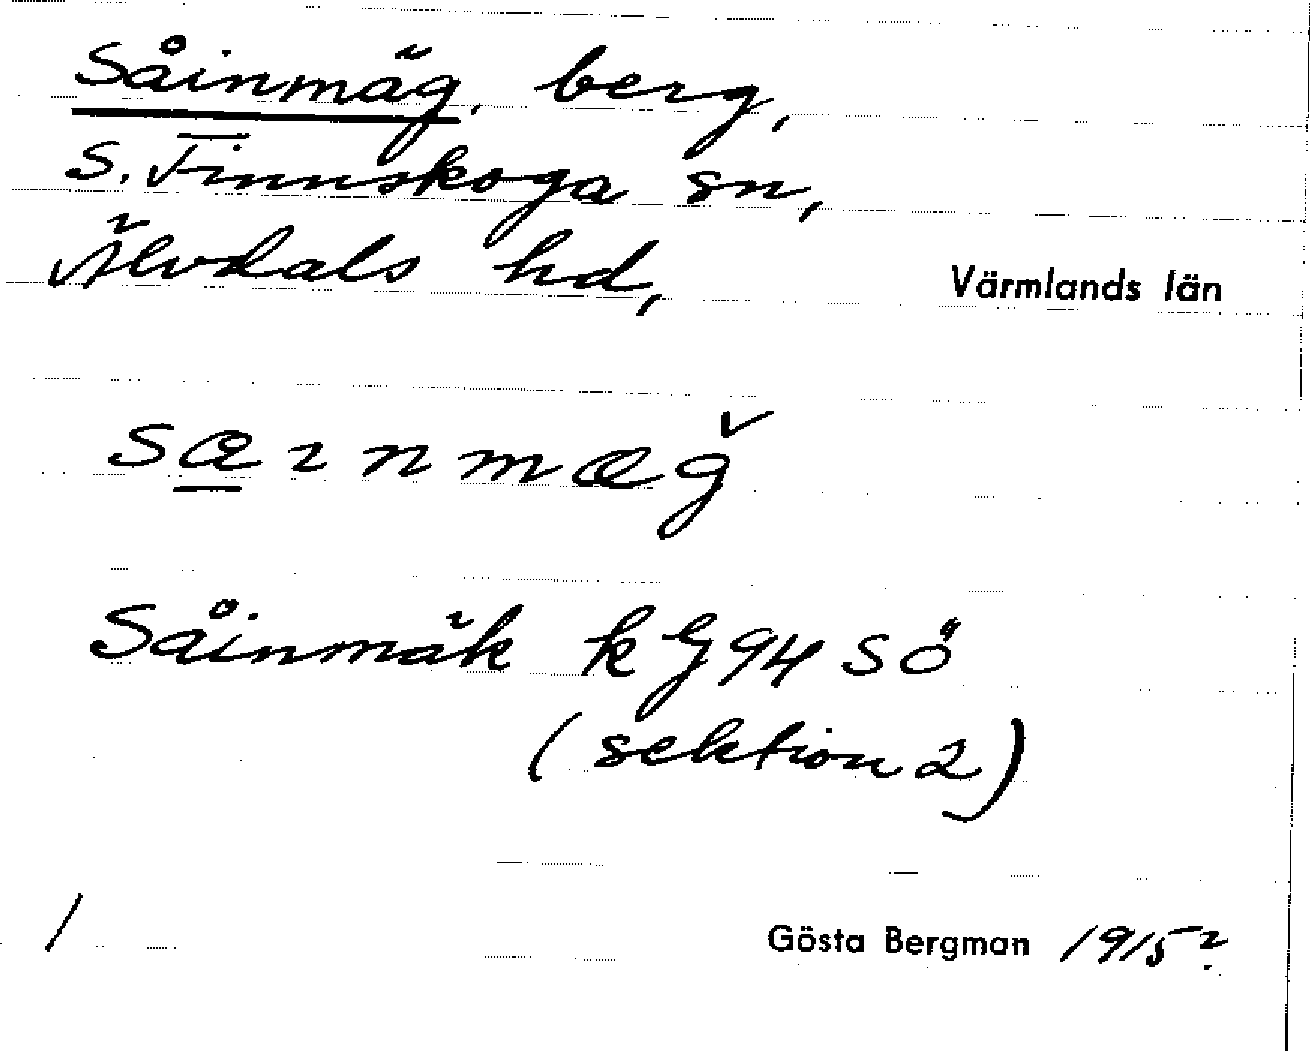 Såinmäg, berg,
S. Finnskoga sn,
Älvdals hd,
Värmlands län
sæınmæğ
Såinmäk kG94SÖ
(sektion 2)
/
Gösta Bergman 1915?